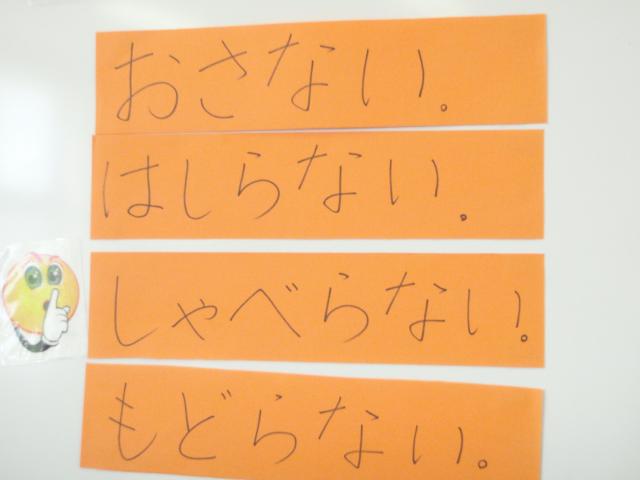 おさない。
はしらない。
しゃべらない。
もどらない。